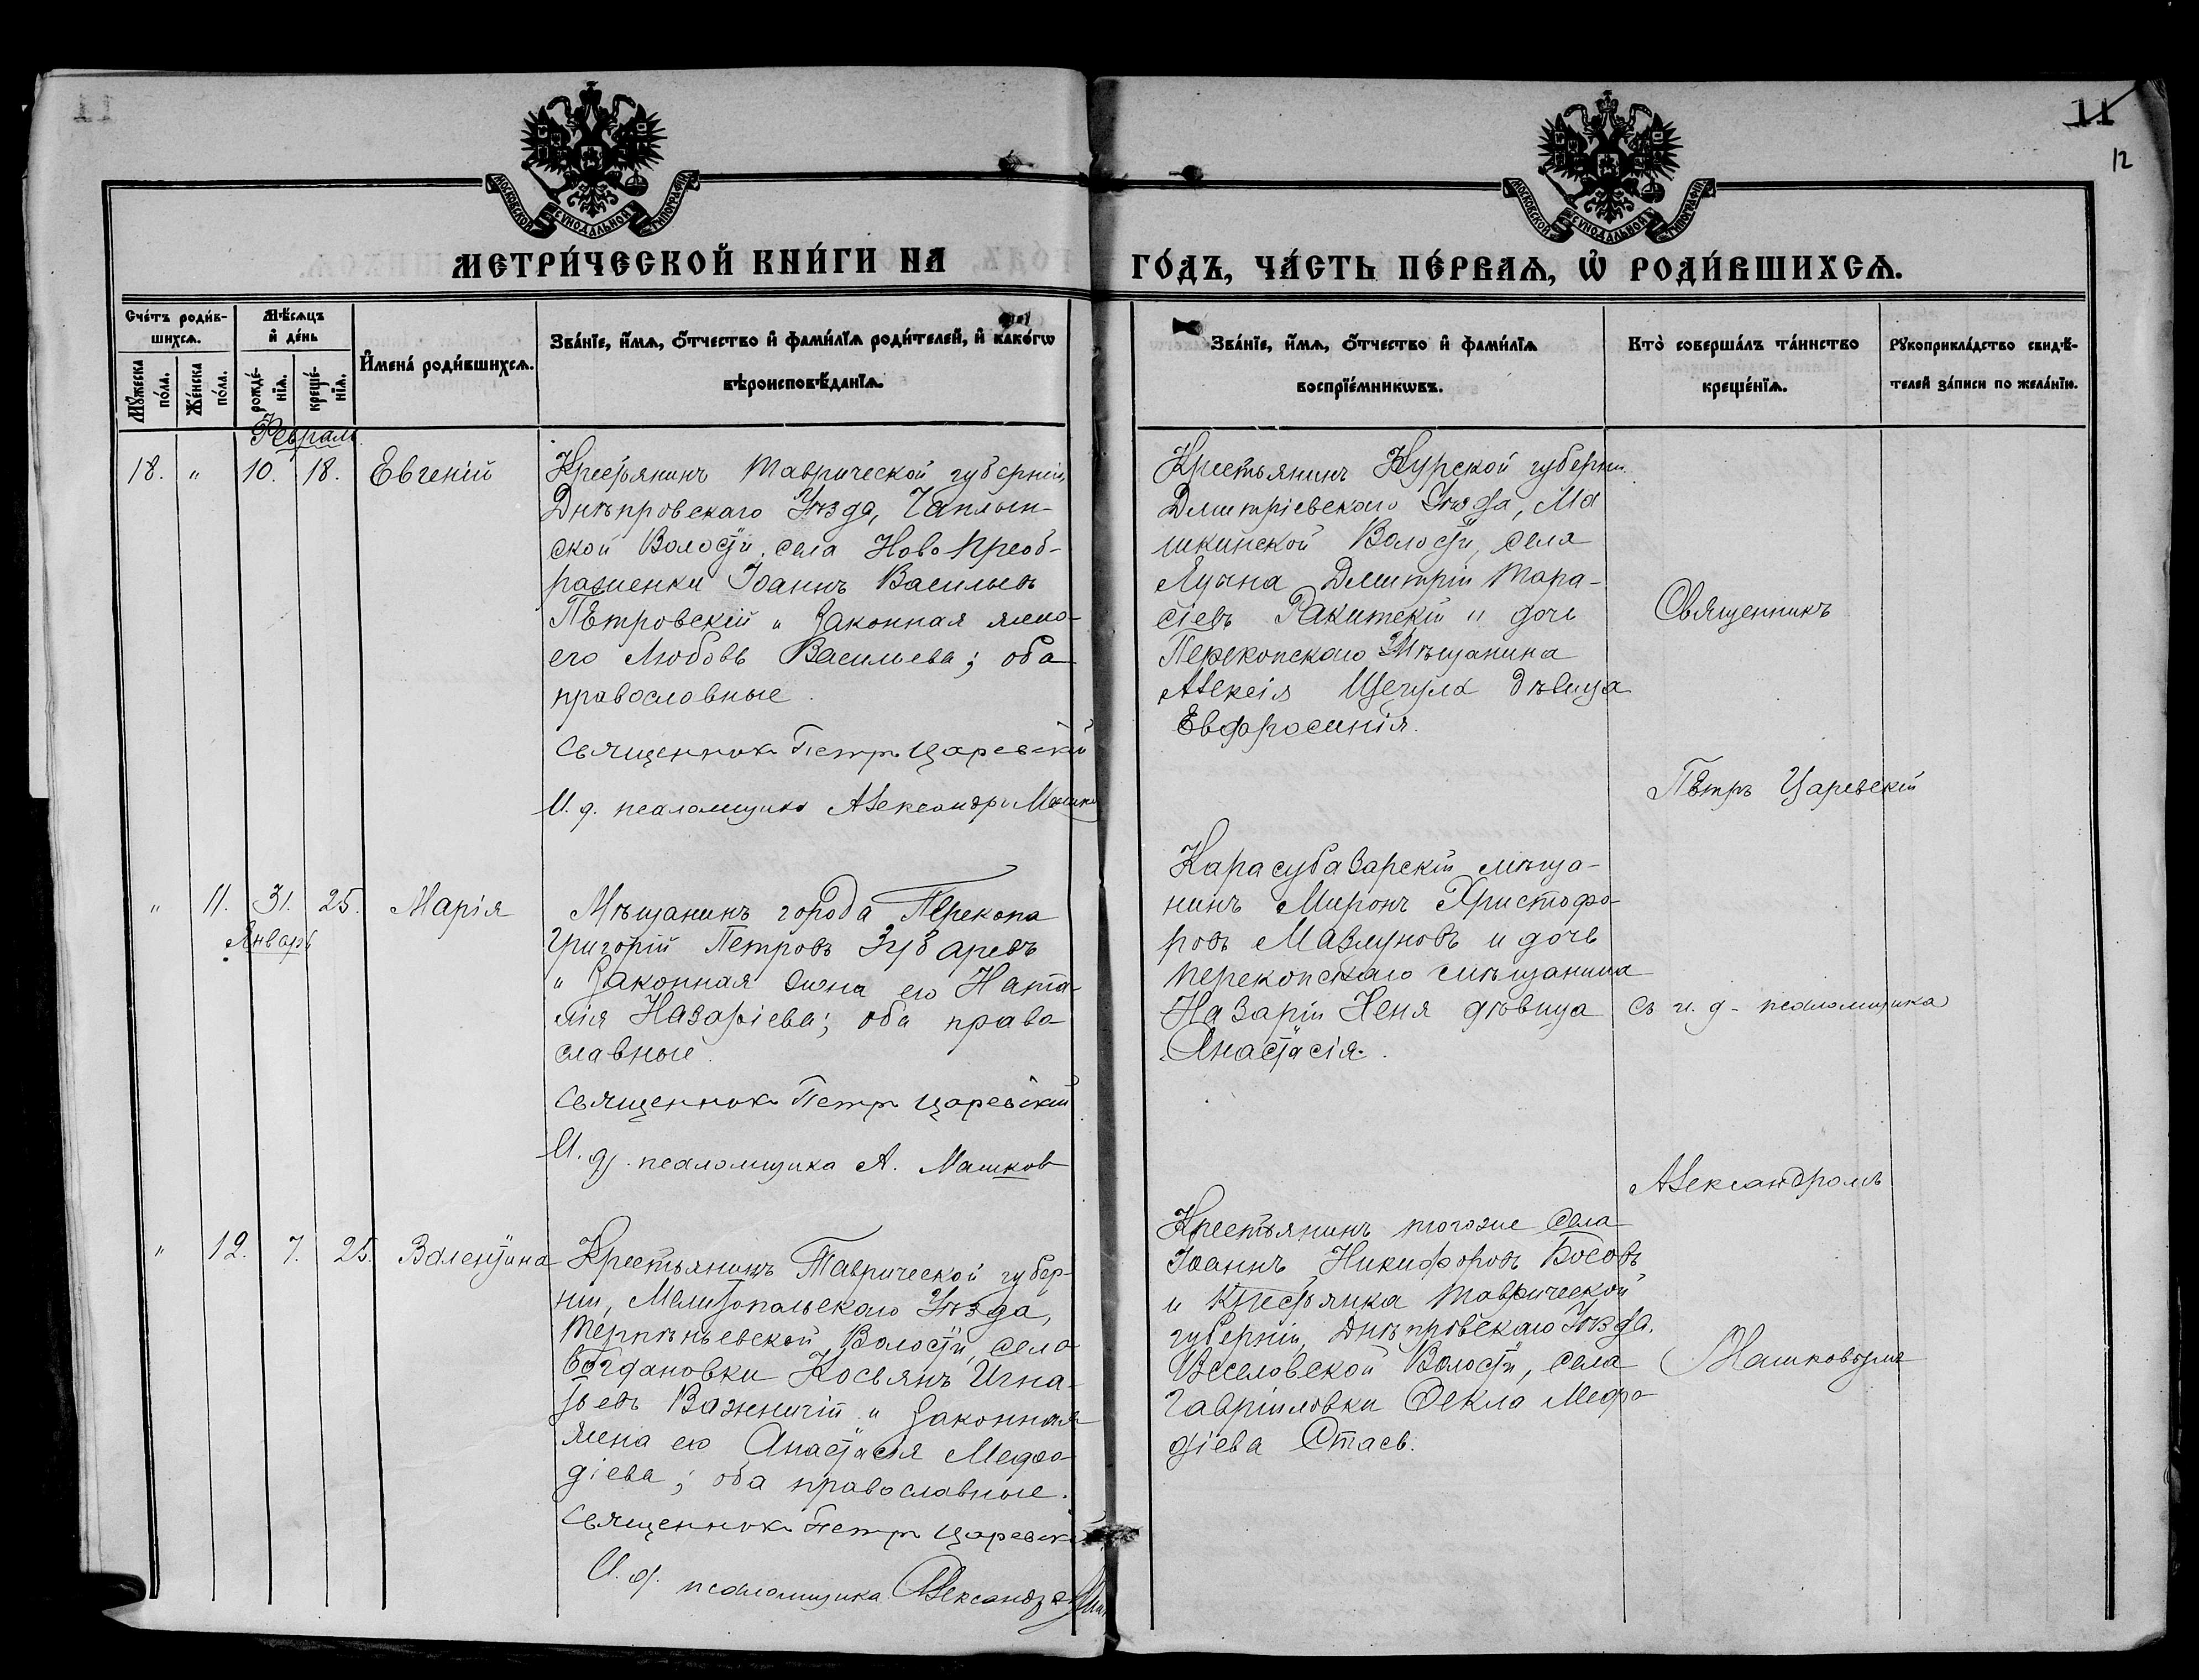 11
12
МОСКОВСКОЙ СѴНОДАЛЬНОЙ ТИПОГРАФІИ
МОСКОВСКОЙ СѴНОДАЛЬНОЙ ТИПОГРАФІИ
МЕТРИ́ЧЕСКОЙ КНИ́ГИ НА
ГО́ДЪ, ЧА́СТЬ ПЕ́РВАѦ, Ѡ҆ РОДИ́ВШИХСѦ.
Сче́тъ роди́в-
шихсѧ.
Мꙋ́жеска по́ла.
Же́нска по́ла.
Мѣ́сѧцъ
и҆ де́нь
рожде́-
нїѧ.
креще́-
нїѧ.
И҆мена̀ роди́вшихсѧ.
Зва́нїе, и҆́мѧ, ѻ҆́тчество и҆ фами́лїѧ роди́телей, и҆ како́гѡ
вѣроисповѣ́данїѧ.
Зва́нїе, и҆́мѧ, ѻ҆́тчество и҆ фами́лїѧ
воспрїе́мникѡвъ.
Кто̀ соверша́лъ та́инство
креще́нїѧ.
Рꙋкоприкла́дство свидѣ́-
телей за́писи по жела́нїю.
Февраль.
18. " 10. 18. Евгеній
Крестьянинъ Таврической губерніи,
Днѣпровскаго Уѣзда, Чаплын-
ской Волости, села Ново Преоб-
раженки Іоаннъ Васильевъ
Пѣтровскій и законная жена
его Любовь Васильева; оба
православные.
Священникъ Петръ Царевскій
И. д. псаломщика Александръ
Крестьянинъ Курской губерніи
Дмитріевскаго Уѣзда,
Волости, села
Дмитрій Тара-
сіевъ Ракитскій и дочь
Перекопскаго Мѣщанина
Алексія Щегула дѣвица
Евфросинія.
Священникъ
Пѣтръ Царевскій
" 11. 31. 25. Марія
Январь
Мѣщанинъ города Перекопа
Григорій Петровъ Зубаревъ
и Законная жена его Ната-
лія Назаріева; оба право
славные.
Священникъ Петръ Царевскій
И. д. псаломщика А. Машков
Карасубазарскій мѣща-
нинъ Миронъ Христофо-
ровъ Мазлуновъ и дочь
перекопскаго мѣщанина
Назарія Кеня дѣвица
Анастасія.
съ и. д. псаломщика
Александромъ
" 12. 7. 25. Валентина
Крестьянинъ Таврической губер-
ніи, Мелитопольскаго Уѣзда,
Терпѣньевской Волости, села
Богдановки Косьянъ Игна-
тьевъ Важничій и законная
жена его Анастасія Мефо-
діева; оба православные.
Священникъ Петръ Царевскій
И. д. псаломщика Александръ
Крестьянинъ тогоже села
Іоаннъ Никифоровъ Босовъ
и Крестьянка Таврической
губерніи, Днѣпровскаго Уѣзда,
Веселовской Волости, села
Гавріиловки Фекла Мефо-
діева Стась.
Машковымъ